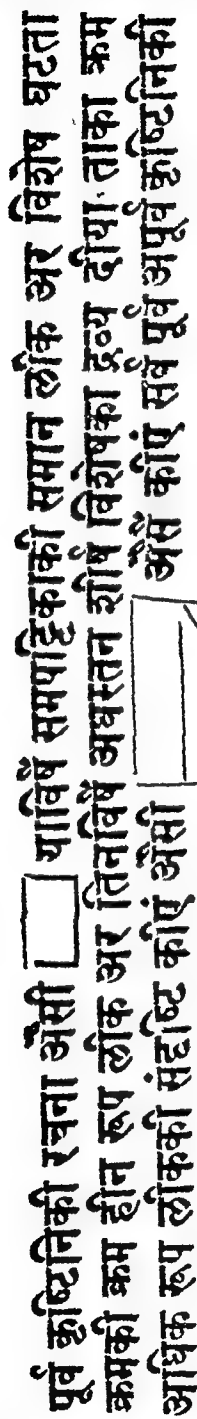 पूर्व कृष्टिनिकी रचना अैसी याविषै समपट्टिकाकी समान लीक अर विशेष घटता
क्रमकी क्रम हीन रूप लीक अर तिनविषै अधस्तन शीर्ष विशेषका द्रव्य दीया ताका क्रम
अधिक रूप लीककी संदृष्टि कीएं अैसी अैसैं कीएं सर्व पूर्व अपूर्व कृष्टिनिकी